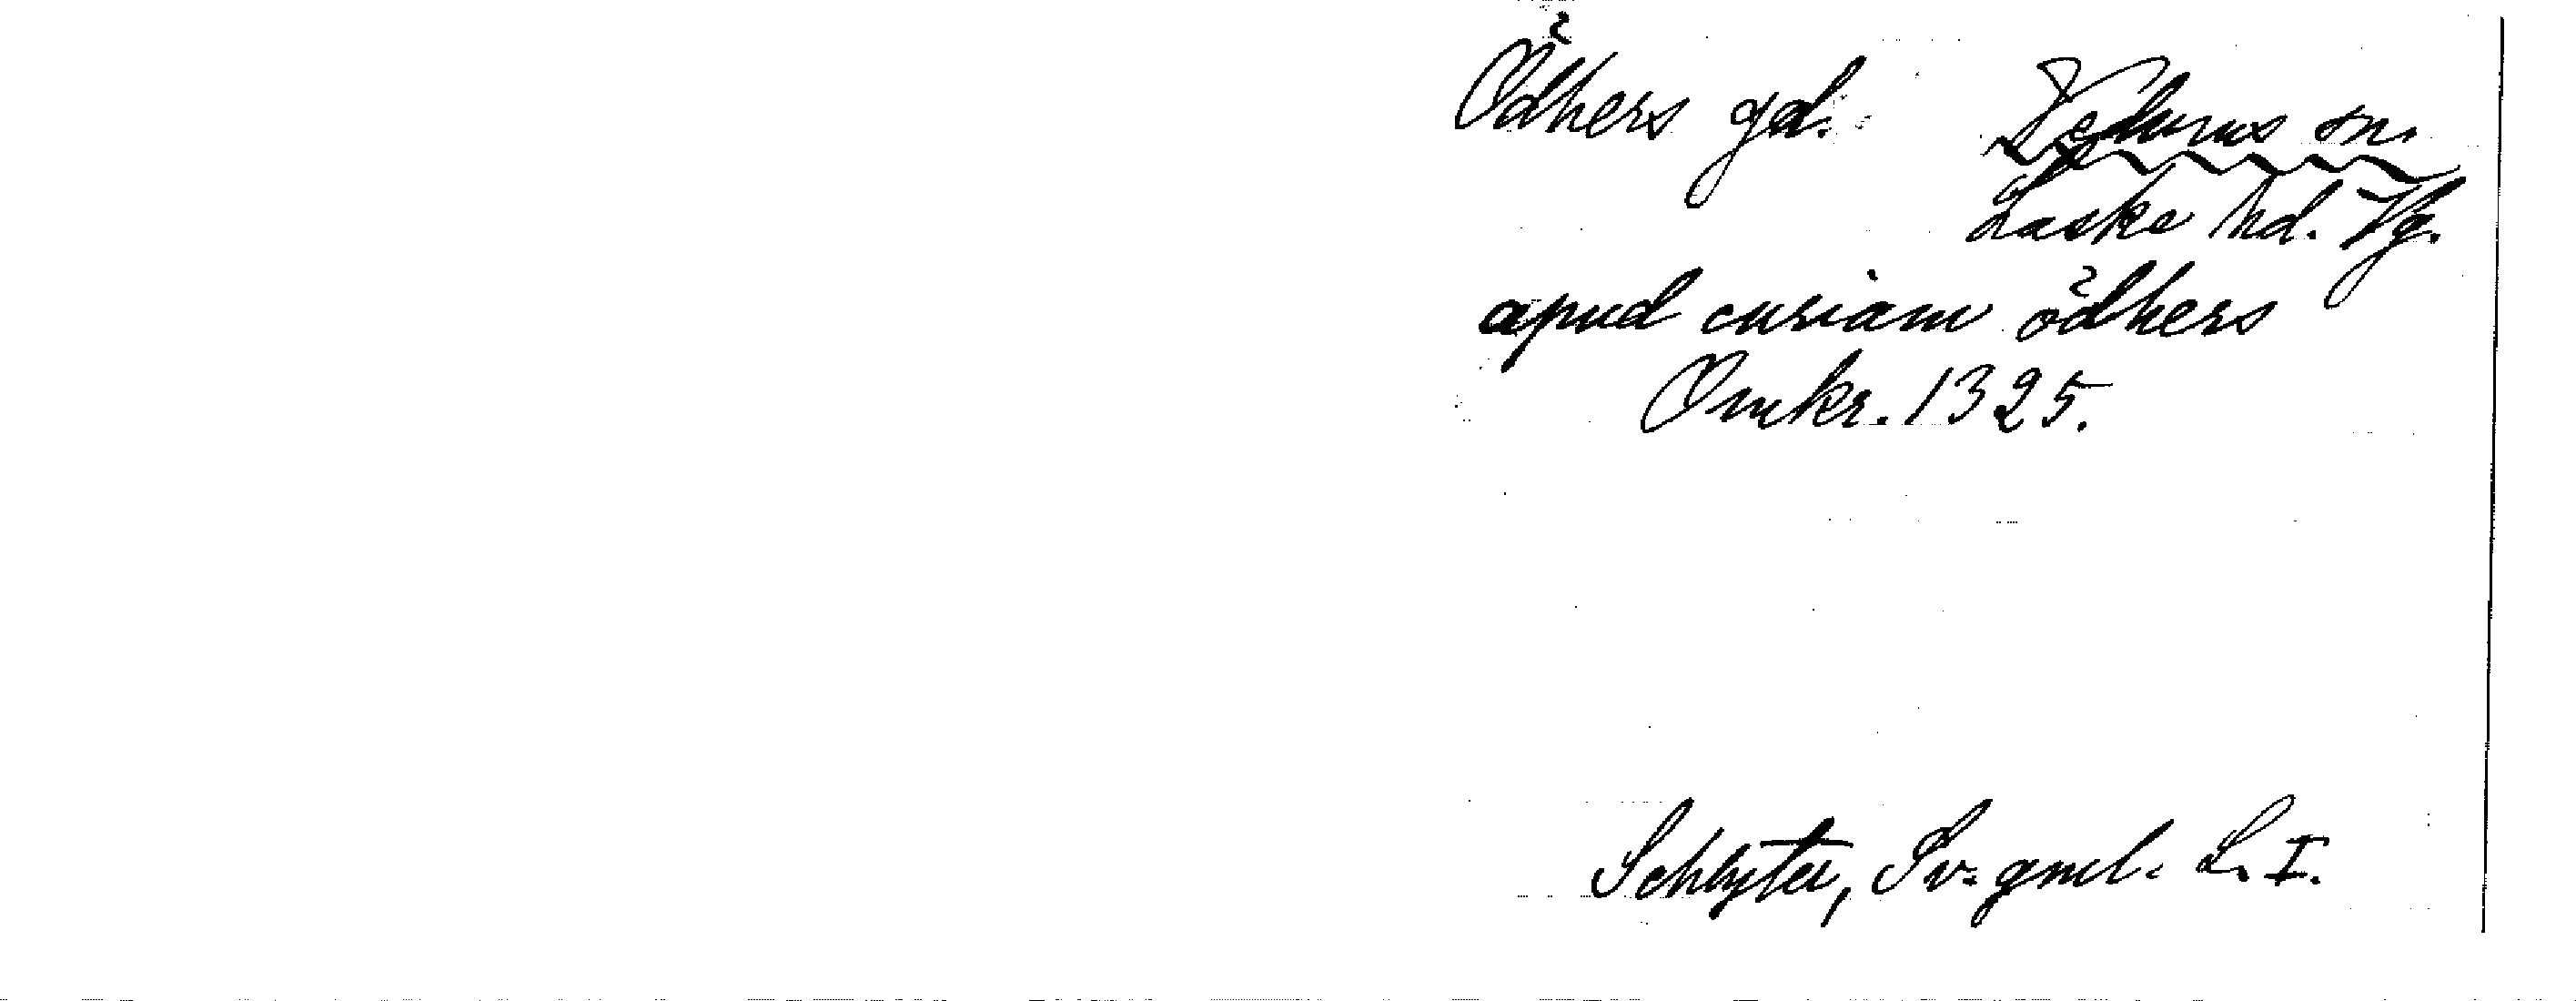 Ödhers gd. Vedums sn.
Laske hd. Vg.
apud curiam ödhers
Omkr. 1325.
Schlyter, Sv. gml. L. I.